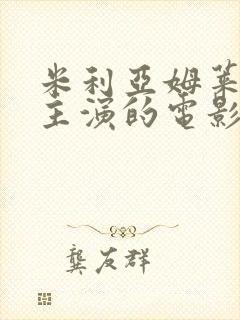 米利亞姆萊
主演的電影
龔友群